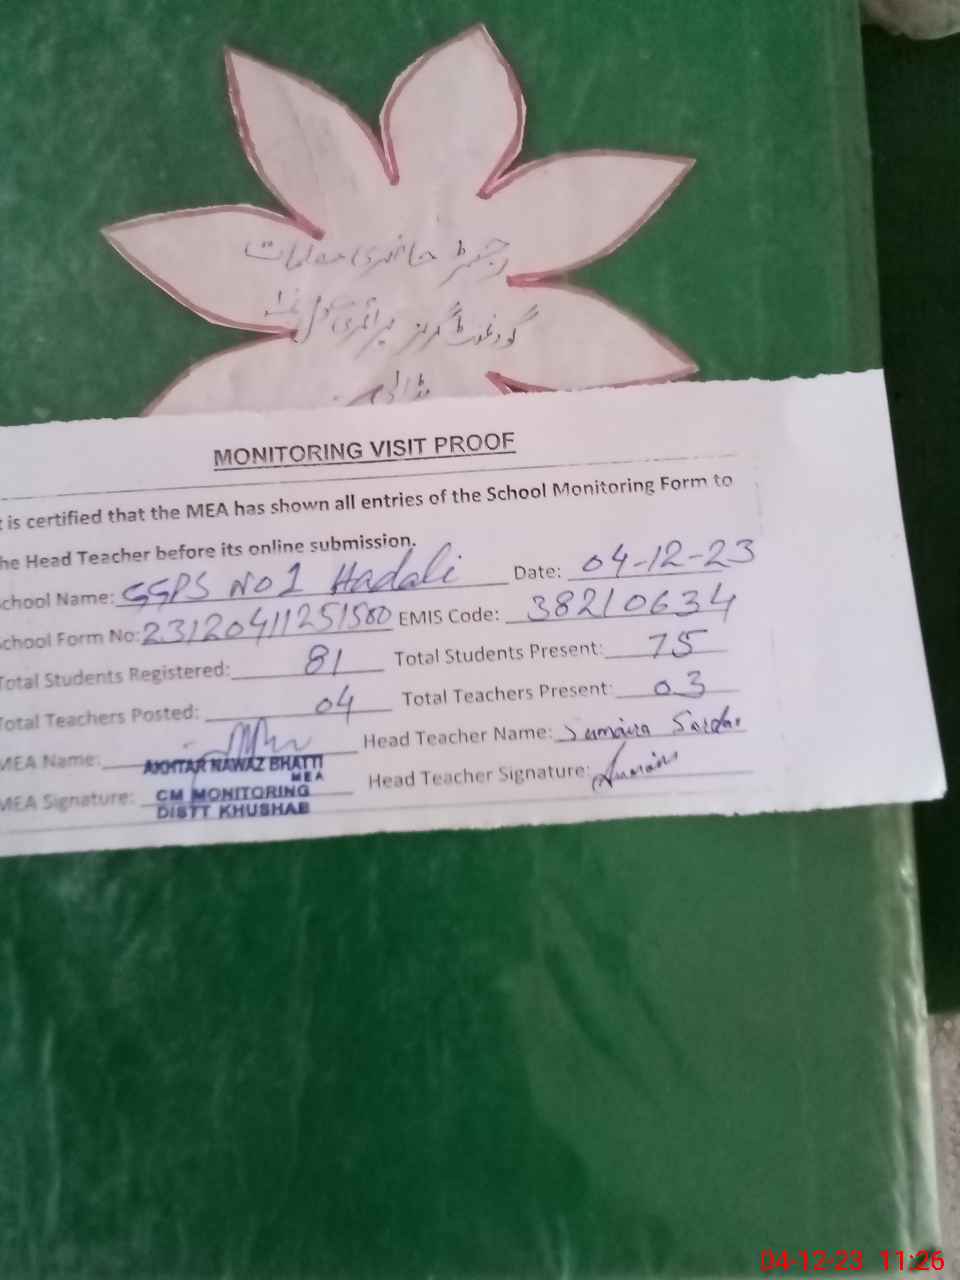 رجسٹر حاضری معلمات
گورنمنٹ گرلز پرائمری سکول نمبر 1
ہڈالی
MONITORING VISIT PROOF
t is certified that the MEA has shown all entries of the School Monitoring Form to
he Head Teacher before its online submission.
chool Name: GGPS No 1 Hadali Date: 04-12-23
chool Form No: 23120411251580 EMIS Code: 38210634
Total Students Registered: 81 Total Students Present: 75
Total Teachers Posted: 04 Total Teachers Present: 03
MEA Name: Head Teacher Name: Sumaira Sardar
AKHTAR NAWAZ BHATTI
MEA
MEA Signature: Head Teacher Signature:
CM MONITORING
DISTT KHUSHAB
04-12-23 11:26